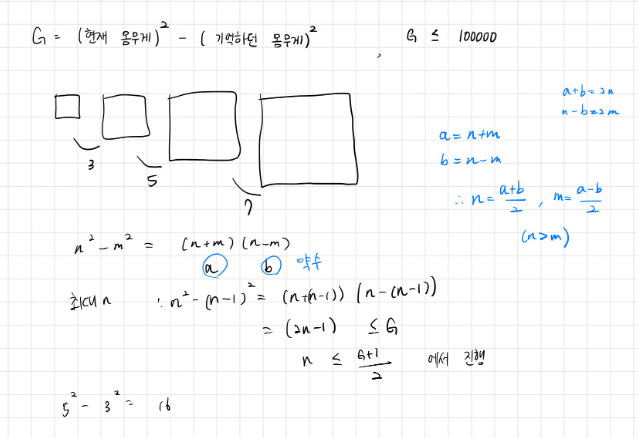 G = (현재 몸무게)² - (기억하던 몸무게)² , G ≤ 100000
3 5 7
a+b=2n
n-b=2m
a = n+m
b = n-m
∴ n = (a+b)/2 , m = (a-b)/2
(n>m)
n² - m² = (n+m)(n-m)
a b 약수
최대 n : n² - (n-1)² = (n+(n-1)) (n-(n-1))
= (2n-1) ≤ G
n ≤ (G+1)/2 에서 진행
5² - 3² = 16